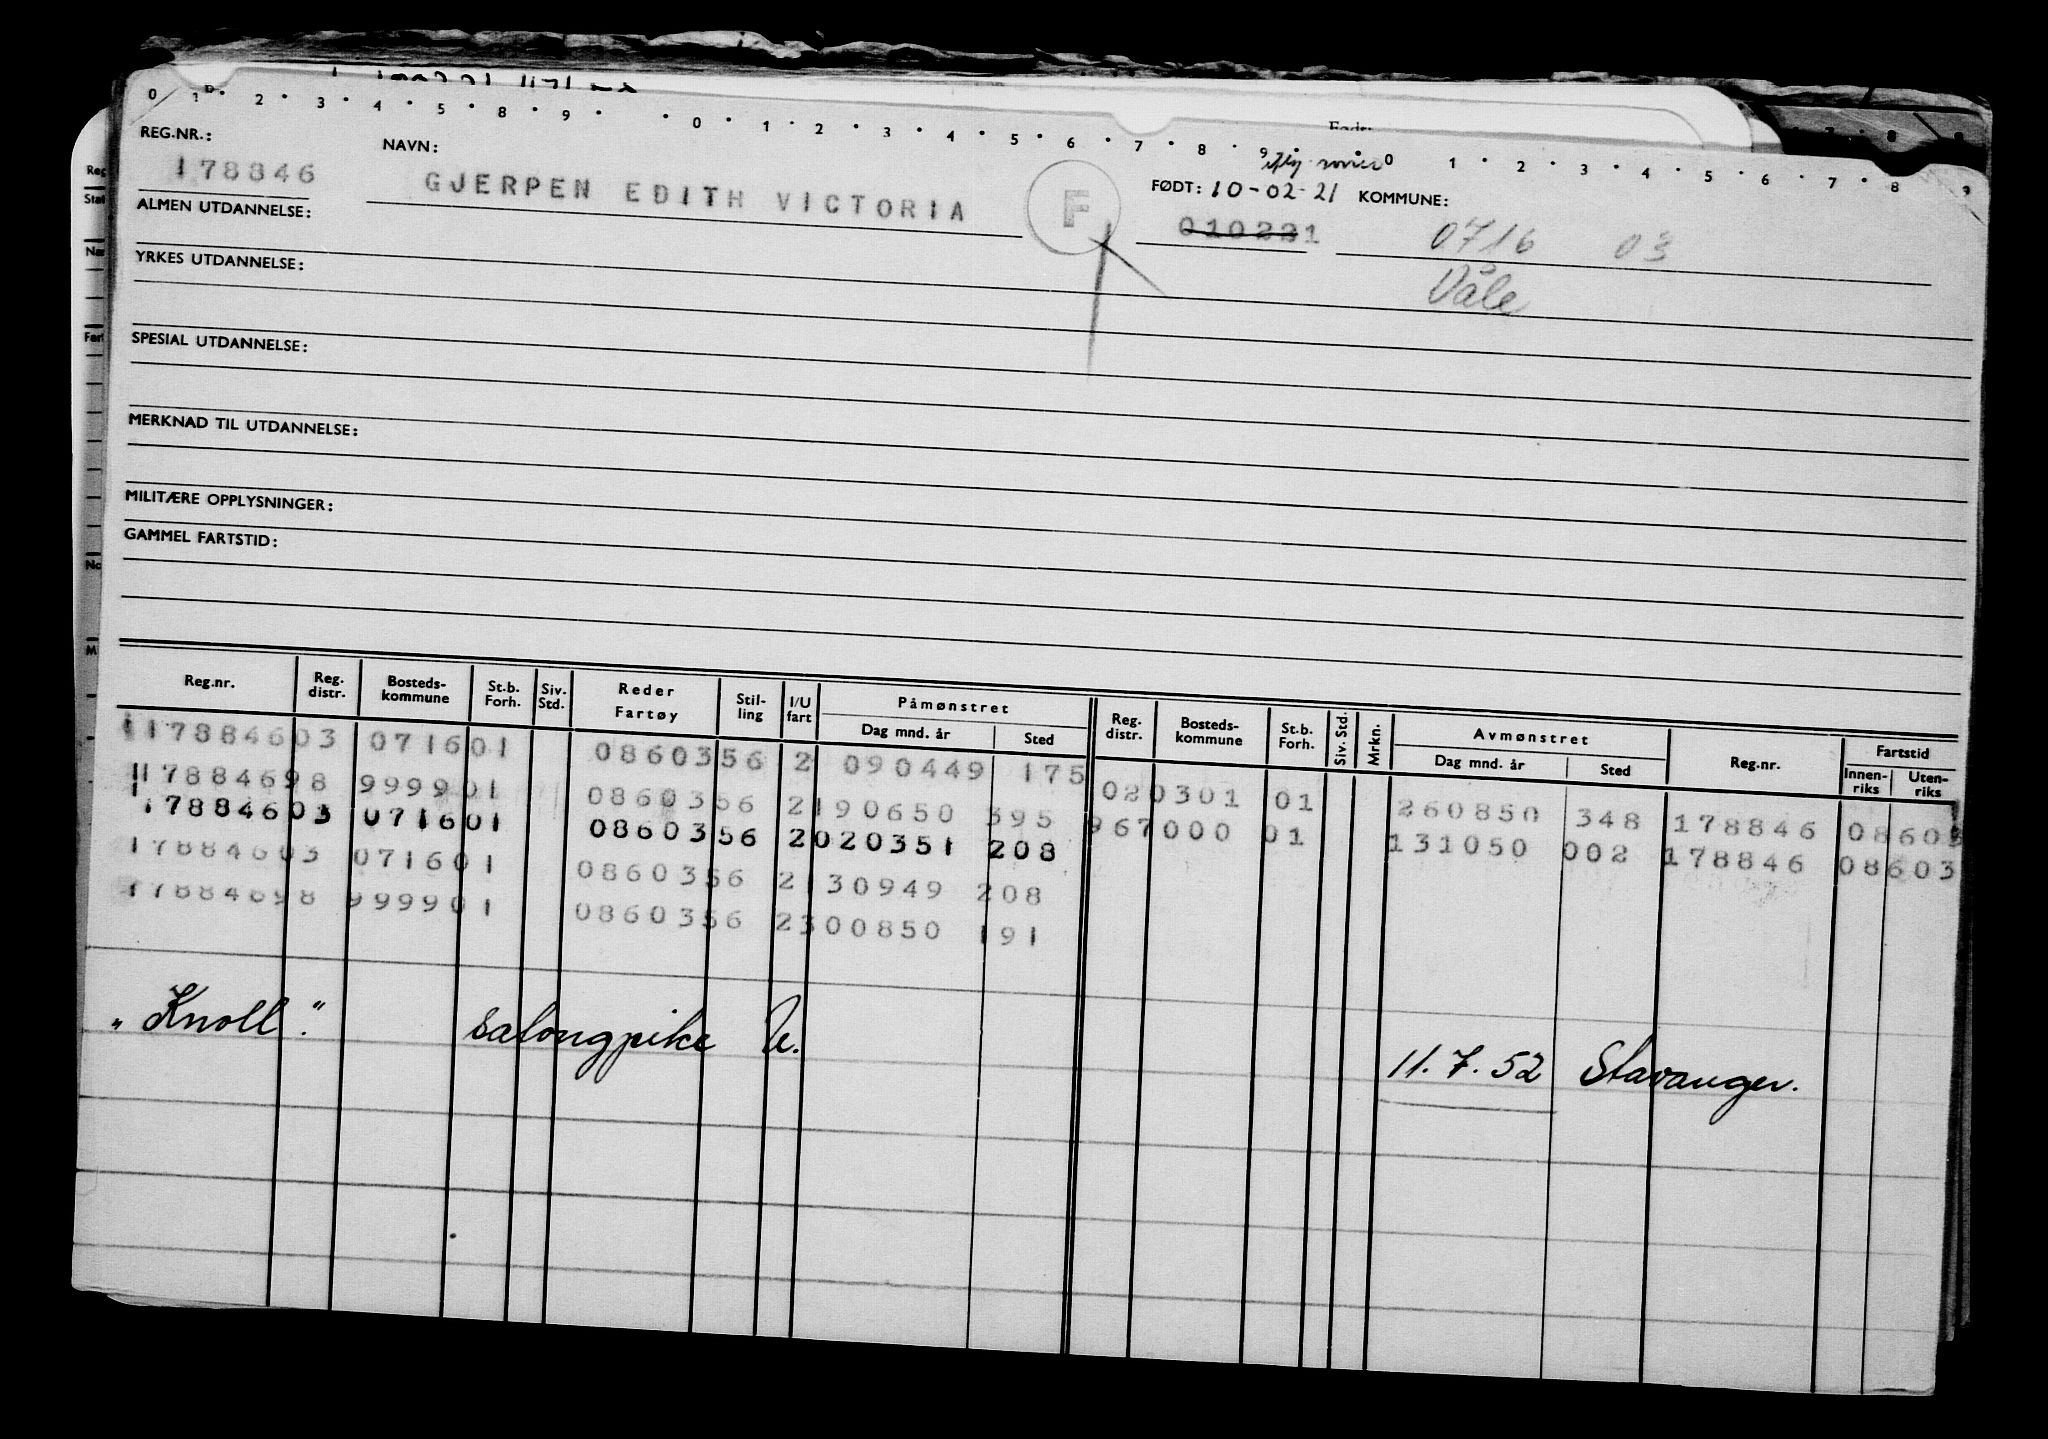 0 1 2 3 4 5 8 9 0 1 2 3 4 5 6 7 8 9 0 1 2 3 4 5 6 7 8 9
REG.NR.: NAVN: FØDT: 10-02-21 KOMMUNE:
178846 GJERPEN EDITH VICTORIA F 010221 0716 03
ALMEN UTDANNELSE:
Våle
YRKES UTDANNELSE:
SPESIAL UTDANNELSE:
MERKNAD TIL UTDANNELSE:
MILITÆRE OPPLYSNINGER:
GAMMEL FARTSTID:
Reg.nr. Reg. distr. Bosteds-kommune St.b. Forh. Siv. Std. Reder Fartøy Stil-ling I/U fart Påmønstret Dag mnd. år Sted Reg. distr. Bosteds-kommune St.b. Forh. Siv. Std. Mrkn. Avmønstret Dag mnd. år Sted Reg.nr. Fartstid Innen-riks Uten-riks
17884603 071601 0860356 2 090449 175 020301 01 260850 348 178846 08603
17884698 999901 0860356 2190650 395 967000 01 131050 002 178846 08603
17884603 071601 0860356 2020351 208
17884603 071601 0860356 2130949 208
17884698 999901 0860356 2300850 191
"Knoll". salongpike U. 11.7.52 Stavanger.